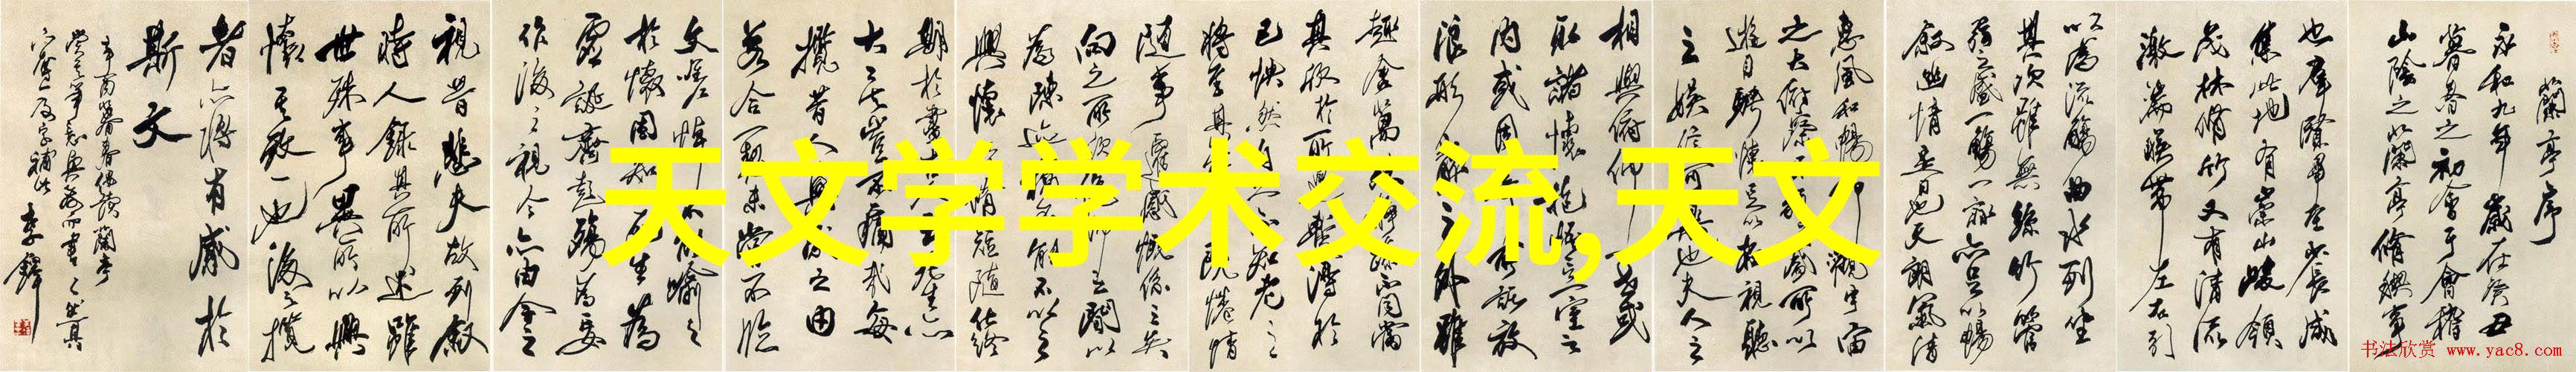 蘭亭序
永和九年歲在癸丑
暮春之初會于會稽
山陰之蘭亭脩禊事
也群賢畢至少長咸
集此地有崇山峻領
茂林脩竹又有清流
激湍暎帶左右引
以為流觴曲水列坐
其次雖無絲竹管
弦之盛一觴一詠亦足以暢
敘幽情是日也天朗氣清
惠風和暢仰觀宇宙
之大俯察品類之盛所以
遊目騁懷足以極視聽
之娛信可樂也夫人之
相與俯仰一世或
取諸懷抱悟言一室之
內或因寄所託放
浪形骸之外雖
趣舍萬殊靜躁不同當
其欣於所遇暫得於
己快然自足不知老之
將至及其所之既惓情
隨事遷感慨係之矣
向之所欣俛仰之間以
為陳迹猶不能不以之
興懷況脩短隨化終
期於盡古人云死生亦
大矣豈不痛哉每
攬昔人興感之由
若合一契未嘗不臨
文嗟悼不能喻之
於懷固知一死生為
虛誕齊彭殤為妄
作後之視今亦由今之
視昔悲夫故列敘
時人錄其所述雖
世殊事異所以興
懷其致一也後之攬
者亦將有感於
斯文
辛酉暮春偶讀蘭亭
李鐸
天文学学术交流,天文
书法欣赏 www.yac8.com